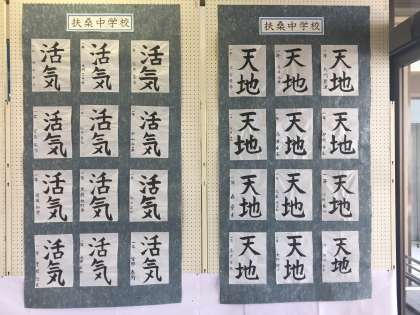 扶桑中学校
活気
活気
活気
活気
活気
活気
活気
活気
活気
活気
活気
活気
扶桑中学校
天地
天地
天地
天地
天地
天地
天地
天地
天地
天地
天地
天地